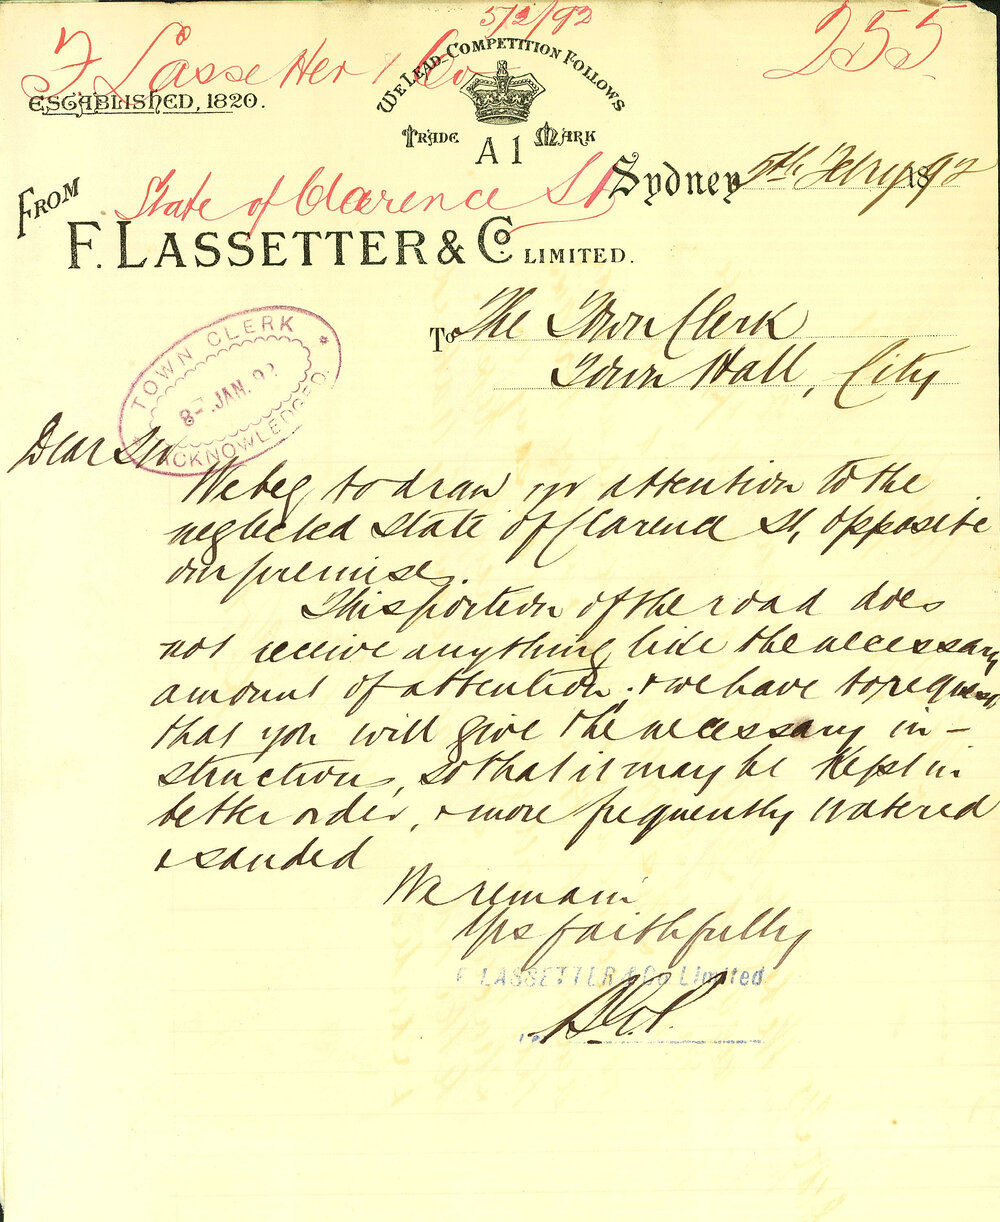 5/2/92
F Lassetter & Co
255
WE LEAD COMPETITION FOLLOWS
ESTABLISHED, 1820.
TRADE MARK
A 1
State of Clarence St
Sydney 5th Febry 1892
FROM
F. LASSETTER & Co LIMITED.
To The Town Clerk
Town Hall, City
TOWN CLERK
8- JAN. 92
ACKNOWLEDGED.
Dear Sir
We beg to draw yr attention to the
neglected state of Clarence St, opposite
our premises.
This portion of the road does
not receive anything like the necessary
amount of attention. & we have to request
that you will give the necessary in-
structions, so that it may be kept in
better order, & more frequently watered
& sanded
We remain
Yrs faithfully
F LASSETTER & Co Limited